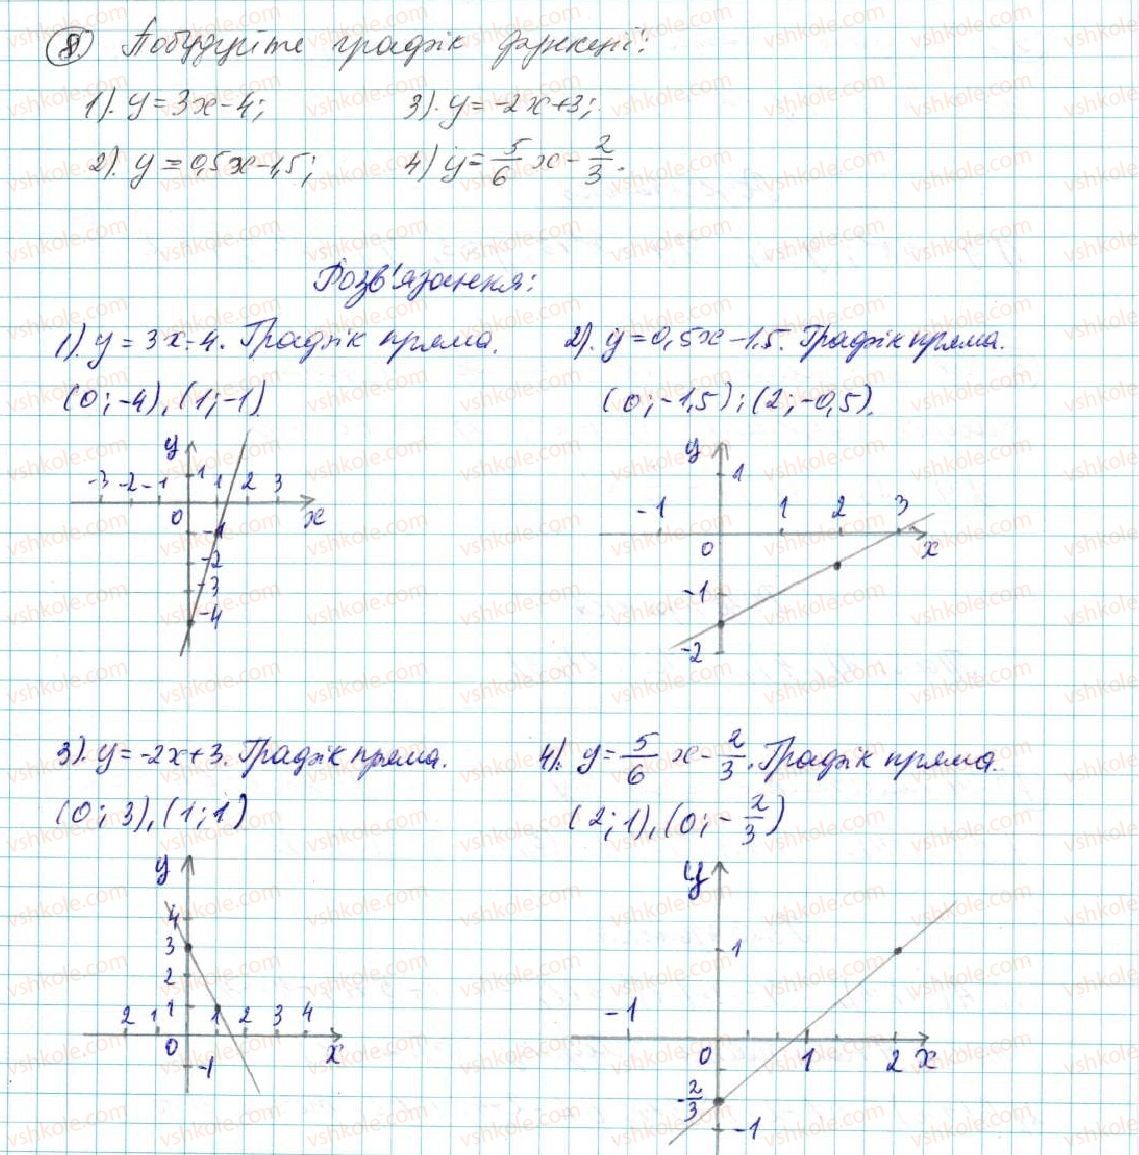 8. Побудуйте графік функції:
1). y=3x-4; 3). y=-2x+3;
2). y=0,5x-1,5; 4) y=5/6 x - 2/3.
Розв'язання:
1). y=3x-4. Графік пряма. 2). y=0,5x-1,5. Графік пряма.
(0;-4),(1;-1) (0;-1,5);(2;-0,5).
y
1
-3 -2 -1 1 2 3
0 x
-1
-2
-3
-4
y
1
-1 1 2 3
0 x
-1
-2
3). y=-2x+3. Графік пряма. 4). y=5/6 x - 2/3. Графік пряма.
(0;3),(1;1) (2;1),(0;-2/3)
y
4
3
2
1
2 1 1 2 3 4
0 x
-1
y
1
-1
0 1 2 x
-2/3
-1
vshkole.com